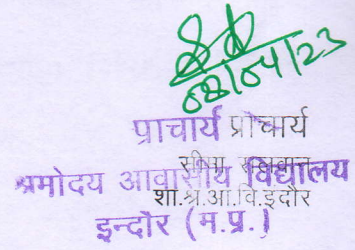 08/04/23
प्राचार्य प्राचार्य
सीमा
श्रमोदय आवासीय विद्यालय
शा.श्र.आ.वि.इंदौर
इन्दौर (म.प्र.)